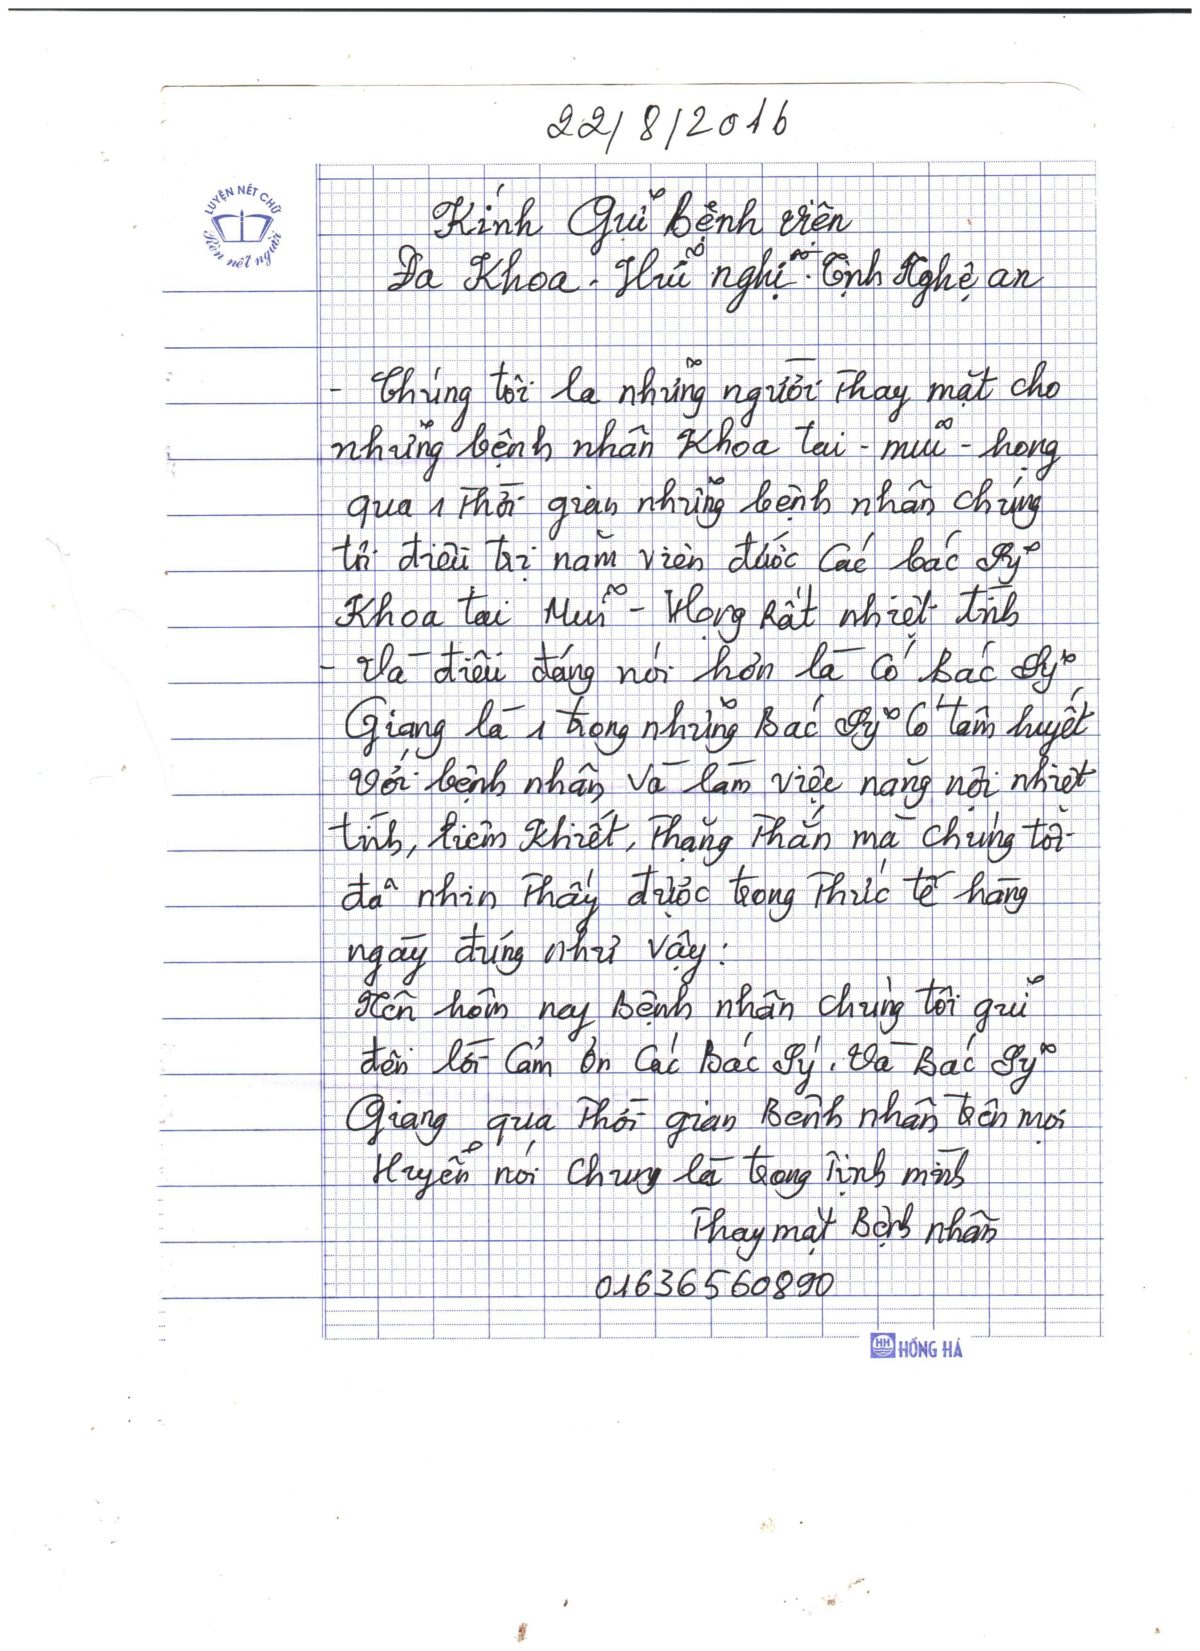 22/8/2016
LUYỆN NÉT CHỮ
Rèn nết người
Kính Gửi Bệnh viện
Đa Khoa - Hữu nghị - Tỉnh Nghệ an
- Chúng tôi là những người Thay mặt cho
những bệnh nhân Khoa tai - mũi - họng
qua 1 Thời gian những bệnh nhân chúng
tôi điều trị nằm viện được Các bác sỹ
Khoa tai Mũi - Họng Rất nhiệt tình
- Và điều đáng nói hơn là Có Bác Sỹ
Giang là 1 trong những Bác Sỹ Có tâm huyết
với bệnh nhân và làm việc năng nội nhiệt
tình, liêm Khiết, Thẳng Thắn mà chúng tôi
đã nhìn Thấy được trong Thực tế hàng
ngày đúng như vậy:
Nên hôm nay Bệnh nhân chúng tôi gửi
đến lời Cảm ơn Các Bác Sỹ. Và Bác Sỹ
Giang qua Thời gian Bệnh nhân trên mọi
Huyện nói Chung là trong Tỉnh mình
Thay mặt Bệnh nhân
01636560890
HH HỒNG HÀ